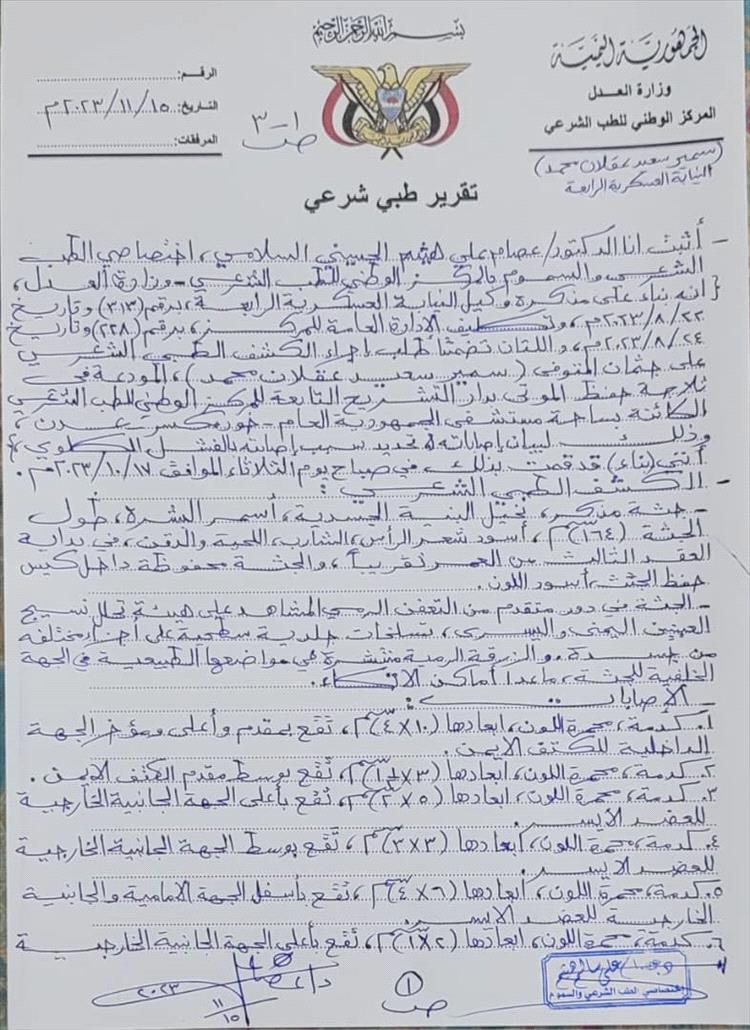 بسم الله الرحمن الرحيم
الجمهورية اليمنية
وزارة العدل
المركز الوطني للطب الشرعي
الرقم:
التاريخ: ٢٠٢٣/١١/١٥م
المرفقات:
ص ١-٣
(سمير سعيد عقلان محمد)
النيابة العسكرية الرابعة
تقرير طبي شرعي
- أثبت انا الدكتور/عصام علي هيثم الحسيني السلامي، اختصاصي الطب
الشرعي والسموم بالمركز الوطني للطب الشرعي - وزارة العدل،
{ انه بناء على مذكرة وكيل النيابة العسكرية الرابعة، برقم (٣١٣) وتاريخ
٢٠٢٣/٨/٢٢م، وتكليف الادارة العامة للمركز، برقم (٢٢٨) وتاريخ
٢٠٢٣/٨/٢٤م، واللتان تضمنتا طلب إجراء الكشف الطبي الشرعي
على جثمان المتوفي (سمير سعيد عقلان محمد)، المودعة في
ثلاجة حفظ الموتى بدار التشريح التابعة للمركز الوطني للطب الشرعي
الكائنة بساحة مستشفى الجمهورية العام - خورمكسر - عدن،
وذلك لبيان إصاباته و تحديد سبب إصابته بالفشل الكلوي،}
أنني (بناء) قد قمت بذلك في صباح يوم الثلاثاء الموافق ٢٠٢٣/١٠/١٧م.
- الكشف الطبي الشرعي:
- جثة مذكر، نحيل البنية الجسدية، أسمر البشرة، طول
الجثة (١٦٤سم)، أسود شعر الرأس، الشارب، اللحية والذقن، في بداية
العقد الثالث من العمر تقريباً، والجثة محفوظة داخل كيس
حفظ الجثث، أسود اللون.
- الجثة في دور متقدم من التعفن الرمي المشاهد على هيئة تحلل نسيج
العينين اليمنى واليسرى، تسلخات جلدية سطحية على أجزاء مختلفه
من جسده. والزرقة الرمية منتشرة في مواضعها الطبيعية في الجهة
الخلفية للجثة، ماعدا أماكن الاتكاء.
- الإصابات:
١. كدمة، محمرة اللون، ابعادها (١٠×٤سم)، تقع بمقدم وأعلى ومؤخر الجهة
الداخلية للكتف الايمن.
٢. كدمة، محمرة اللون، ابعادها (٣×١سم)، تقع بوسط مقدم الكتف الايمن.
٣. كدمة، محمرة اللون، ابعادها (٥×٢سم)، تقع بأعلى الجهة الجانبية الخارجية
للعضد الأيسر.
٤. كدمة، محمرة اللون، أبعادها (٣×٣سم)، تقع بوسط الجهة الجانبية الخارجية
للعضد الايسر.
٥. كدمة، محمرة اللون، ابعادها (٦×٤سم)، تقع بأسفل الجهة الامامية والجانبية
الخارجية للعضد الايسر.
٦. كدمة، محمرة اللون، ابعادها (٢×١سم)، تقع بأعلى الجهة الجانبية الخارجية
اختصاصي الطب الشرعي والسموم
ص ١
د/عصام
٢٠٢٣/١١/١٥